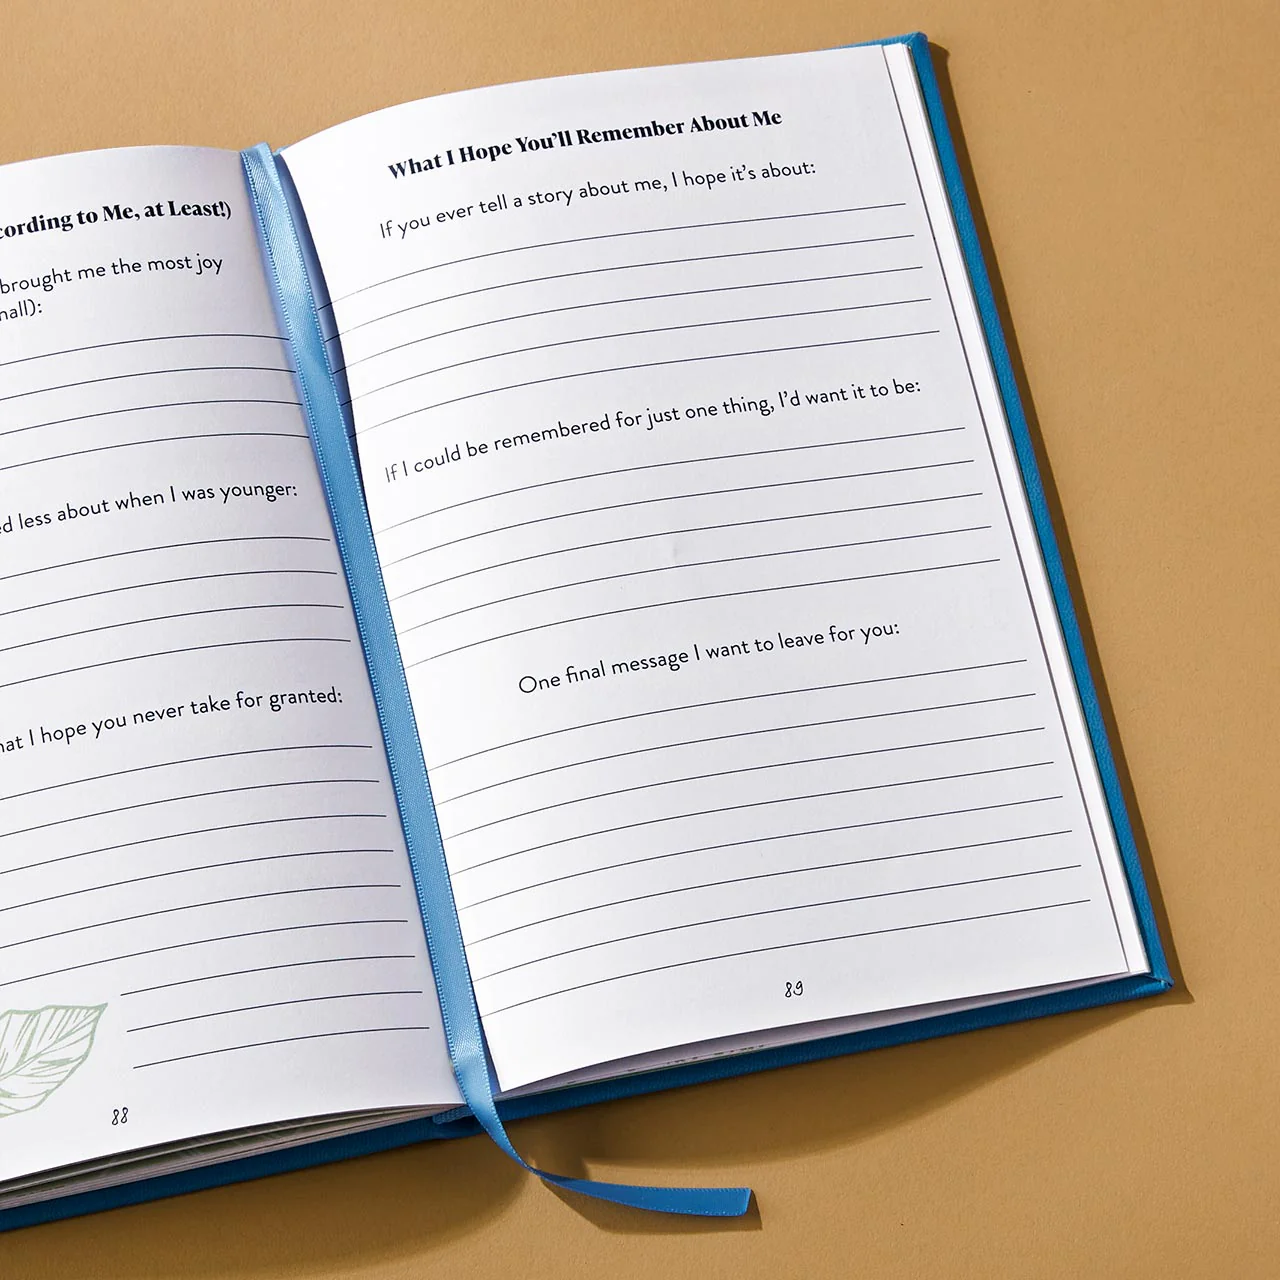 to Me, at Least!)
brought me the most joy
less about when I was younger:
I hope you never take for granted:
88
What I Hope You'll Remember About Me
If you ever tell a story about me, I hope it's about:
If I could be remembered for just one thing, I'd want it to be:
One final message I want to leave for you:
89